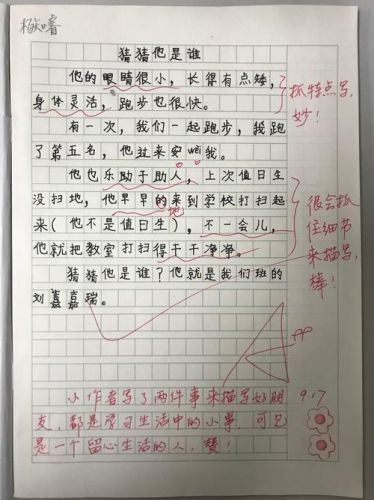 杨知睿
猜猜他是谁
他的眼睛很小，长得有点矮，
身体灵活，跑步也很快。
抓特点写，
妙！
有一次，我们一起跑步，我跑
了第五名，他过来安wèi我。
他也乐助于助人，上次值日生
没扫地，他早早的来到学校打扫起
地
来（他不是值日生），不一会儿，
他就把教室打扫得干干净净。
很会抓
住细节
来描写，
棒！
猜猜他是谁？他就是我们班的
刘嘉嘉瑞。
小作者写了两件事来描写好朋
友，都是学习生活中的小事，可见
是一个留心生活的人，赞！
9.17